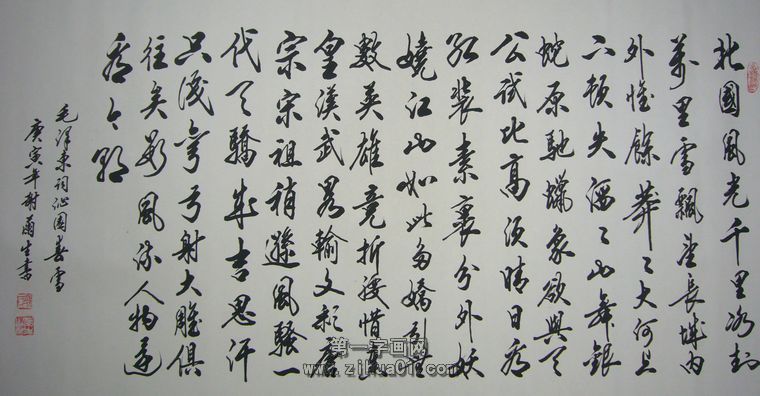 北國風光千里冰封
萬里雪飄望長城内
外惟餘莽々大河上
下頓失滔々山舞銀
蛇原馳蠟象欲與天
公試比高須晴日看
紅裝素裹分外妖
嬈江山如此多嬌引無
數英雄競折腰惜秦
皇漢武畧輸文彩唐
宗宋祖稍遜風騷一
代天驕成吉思汗
只識彎弓射大雕俱
往矣數風流人物還
看今朝
毛澤東詞沁園春雪
庚寅年謝生書
第一字画网
www.zihua010.com